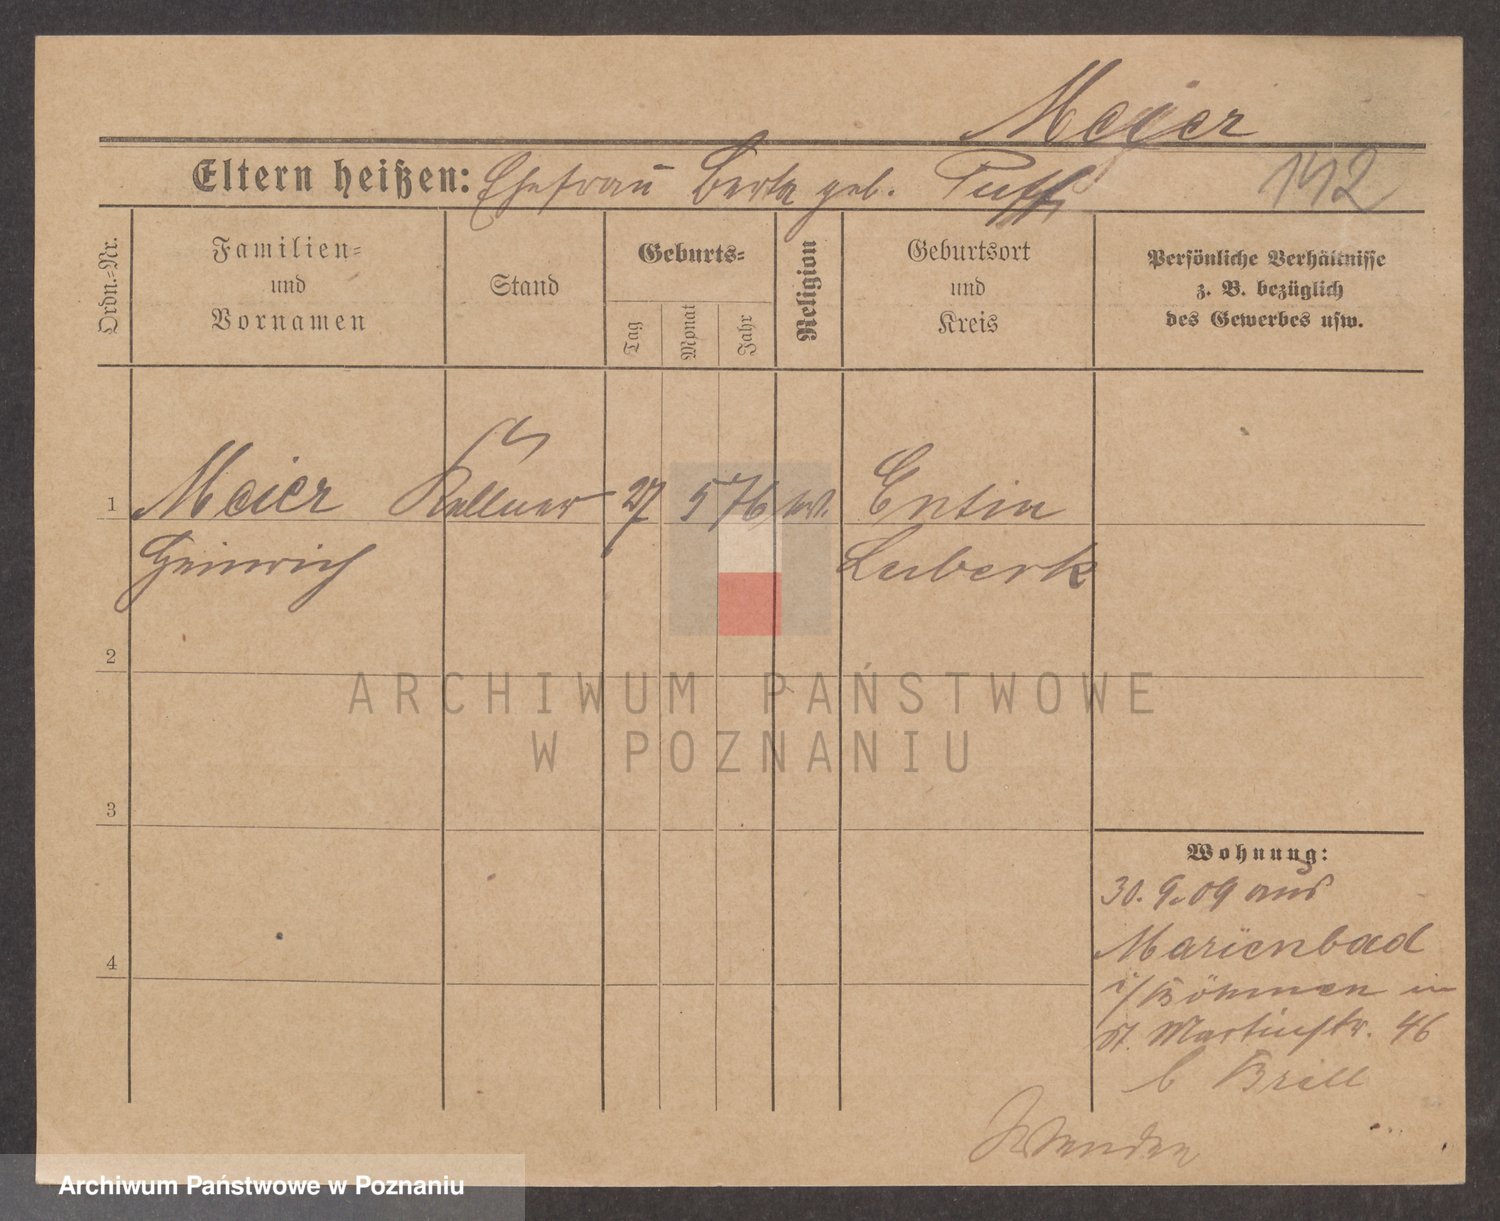 Meier
Eltern heißen: Ehefrau Berta geb. Puff
142
Ordn.-Nr.
Familien-
und
Vornamen
Stand
Geburts-
Tag
Monat
Jahr
Religion
Geburtsort
und
Kreis
Persönliche Verhältnisse
z. B. bezüglich
des Gewerbes usw.
1
Meier Kellner 27 5 76 Eutin
Heinrich Lubeck
2
3
4
Wohnung:
30. 9. 09 aus
Marienbad
i/Böhmen in
St. Martinstr. 46
b Brill
Wenden
ARCHIWUM PAŃSTWOWE
W POZNANIU
Archiwum Państwowe w Poznaniu